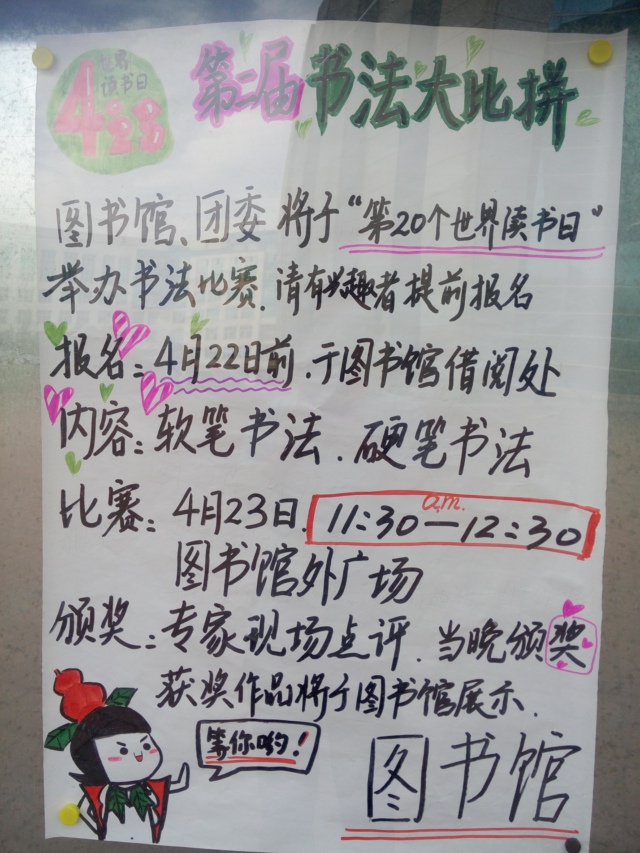 世界
读书日
423
第二届书法大比拼
图书馆、团委将于“第20个世界读书日”
举办书法比赛.请有兴趣者提前报名
报名:4月22日前.于图书馆借阅处
内容:软笔书法.硬笔书法
a.m.
比赛:4月23日.11:30—12:30
图书馆外广场
颁奖:专家现场点评.当晚颁奖
获奖作品将于图书馆展示.
等你哟!
图书馆